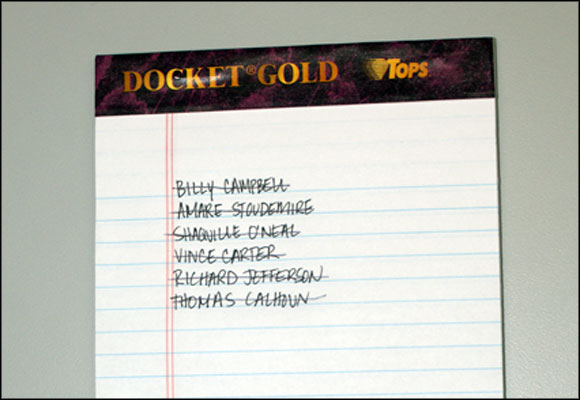 DOCKET® GOLD TOPS
BILLY CAMPBELL
AMARE STOUDEMIRE
SHAQUILLE O'NEAL
VINCE CARTER
RICHARD JEFFERSON
THOMAS CALHOUN